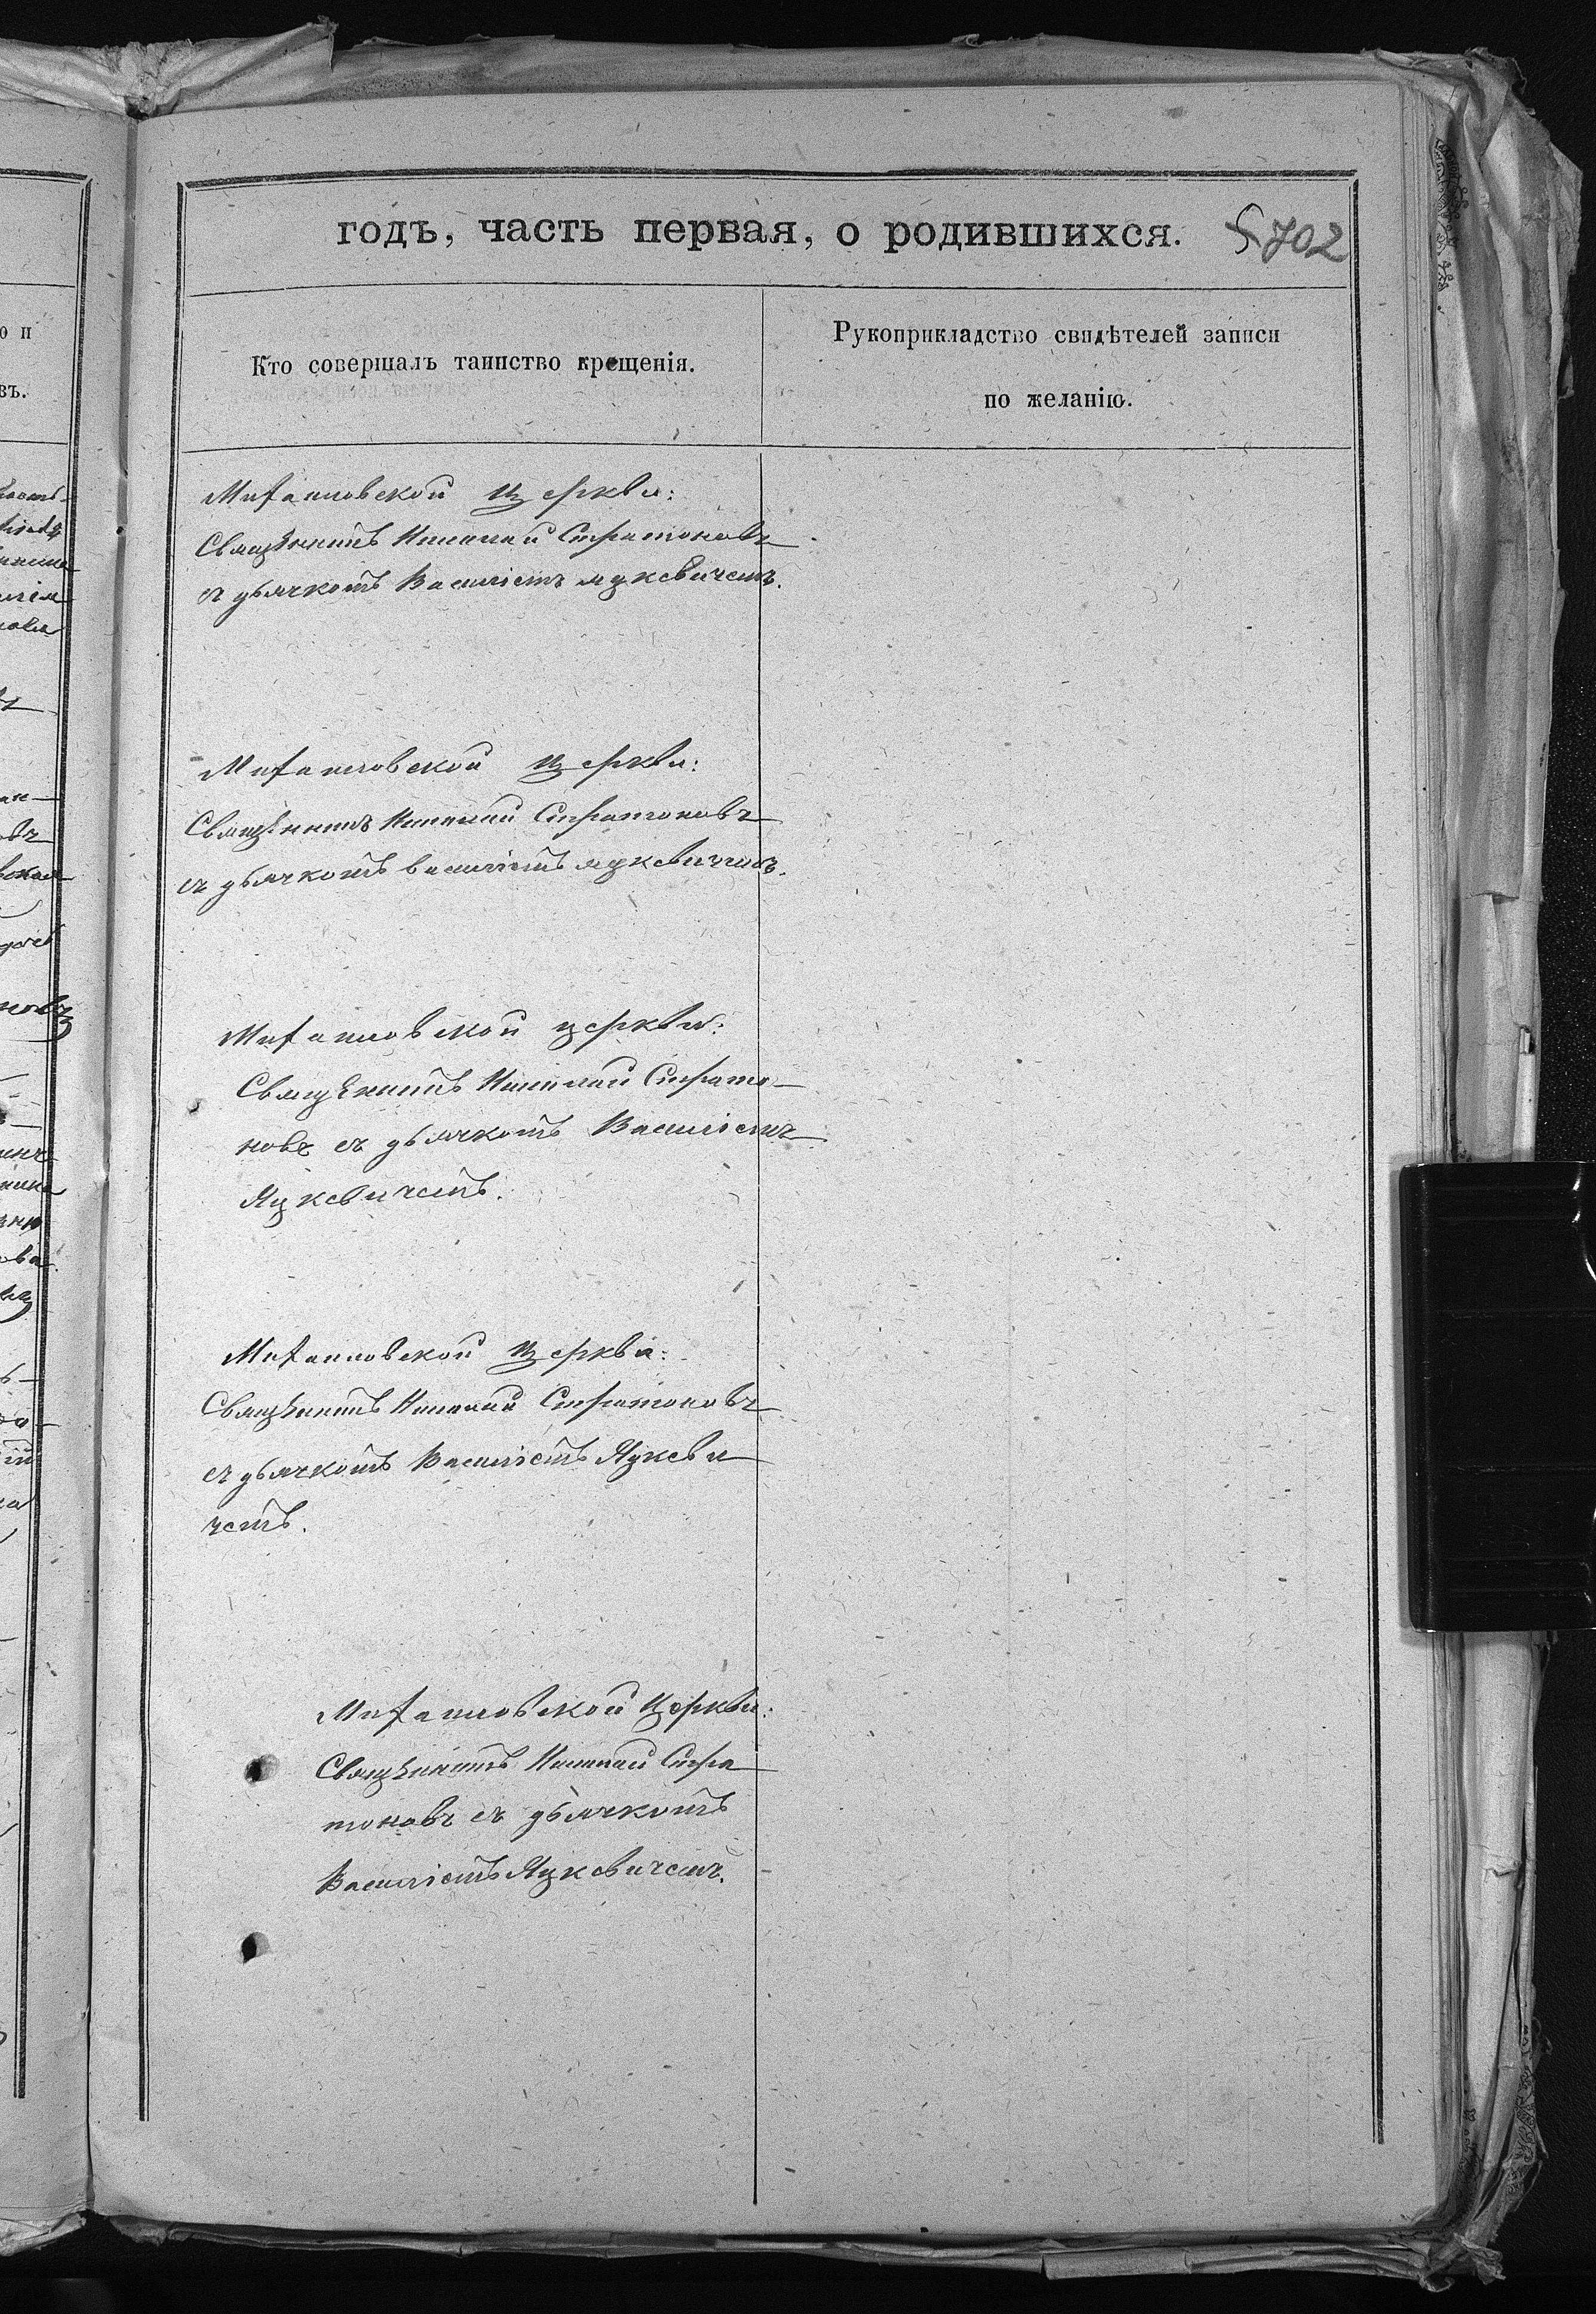 годъ, часть первая, о родившихся. 5702
Кто совершалъ таинство крещенія.
Рукоприкладство свидѣтелей записи
по желанію.
Михаиловской Церкви:
Священникъ Николай Стратоновъ
съ дьячкомъ Василіемъ яцкевичемъ.
Михаиловской Церкви:
Священникъ Николай Стратоновъ
съ дьячкомъ василіемъ яцкевичемъ.
Михаиловской церкви:
Священникъ Николай Страто-
новъ съ дьячкомъ Василіемъ
Яцкевичемъ.
Михаиловской Церкви:
Священникъ Николай Стратоновъ
съ дьячкомъ Василіемъ Яцкеви
чемъ.
Михаиловской Церкви:
Священникъ Николай Стра
тоновъ съ дьячкомъ
Василіемъ Яцкевичемъ.